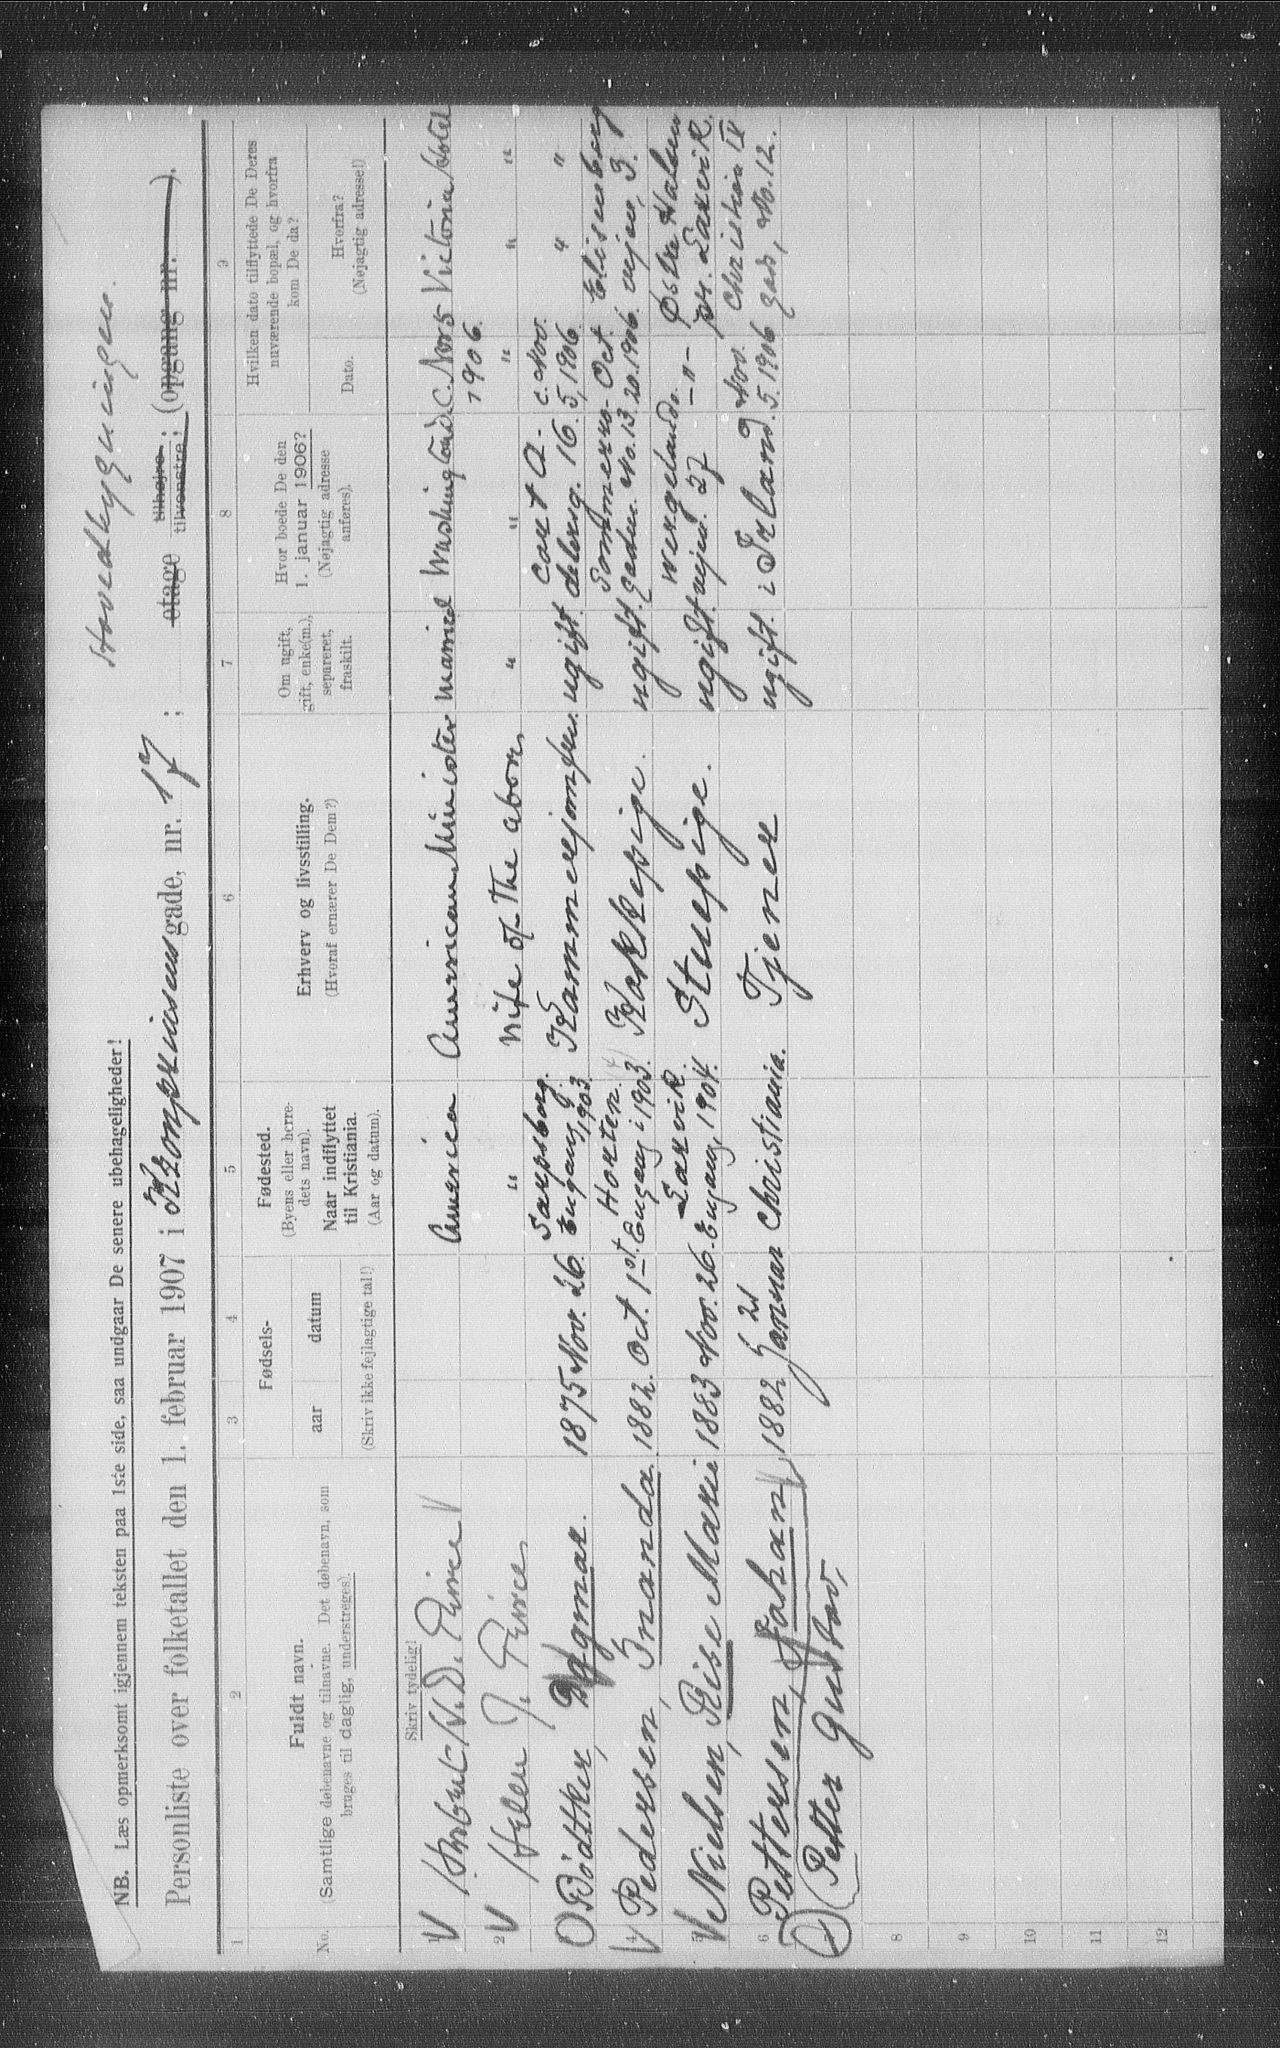 Hovedbygningen.
NB. Læs opmerksomt igjennem teksten paa 1ste side, saa undgaar De senere ubehageligheder!
Personliste over folketallet den 1. februar 1907 i Kronprinsens gade, nr. 17 ; etage tilhøjre ; tilvenstre ; (opgang nr. ).
1 2 3 4 5 6 7 8 9
No.
Fuldt navn.
(Samtlige døbenavne og tilnavne. Det døbenavn, som
bruges til daglig, understreges).
Fødsels-
aar
datum
(Skriv ikke fejlagtige tal!)
Fødested.
(Byens eller herre-
dets navn).
Naar indflyttet
til Kristiania.
(Aar og datum).
Erhverv og livsstilling.
(Hvoraf ernærer De Dem?)
Om ugift,
gift, enke(m.),
separeret,
fraskilt.
Hvor boede De den
1. januar 1906?
(Nøjagtig adresse
anføres).
Hvilken dato tilflyttede De Deres
nuværende bopæl, og hvorfra
kom De da?
Dato.
Hvorfra?
(Nøjagtig adresse!)
Skriv tydelig!
1 Herbert H. D. Peirce America American Minister married Washington D.C. Nov 5 1906. Victoria Hotel
2 Helen J. Peirce " Wife of the above " " " " "
Bödtker, Dagmar. 1875 Nov. 26. Sarpsborg. Engang 1903. Kammerjomfru. ugift. Cort A- delersg. 16. c. Nov. 5, 1906. " "
4 Pedersen, Inanda. 1882. Oct. 1st. Horten. Engang i 1903. Kokkepige. ugift. Sommerro- gaden. No. 13. Oct. 20. 1906. Elisenberg vejen, 3.
5 Nielsen, Rise Marie 1883 Nov. 26. Larvik. Engang 1904. Stuepige. ugift. Wergelands- vejen. 27 - " - Østre Halsen pr. Larvik.
6 Pettersen, Johan 1882 Januar 21 Christiania. Tjener ugift. i Irland. Nov. 5. 1906 Christian IV gad, No. 12.
(Petter Gustav,
8
9
10
11
12